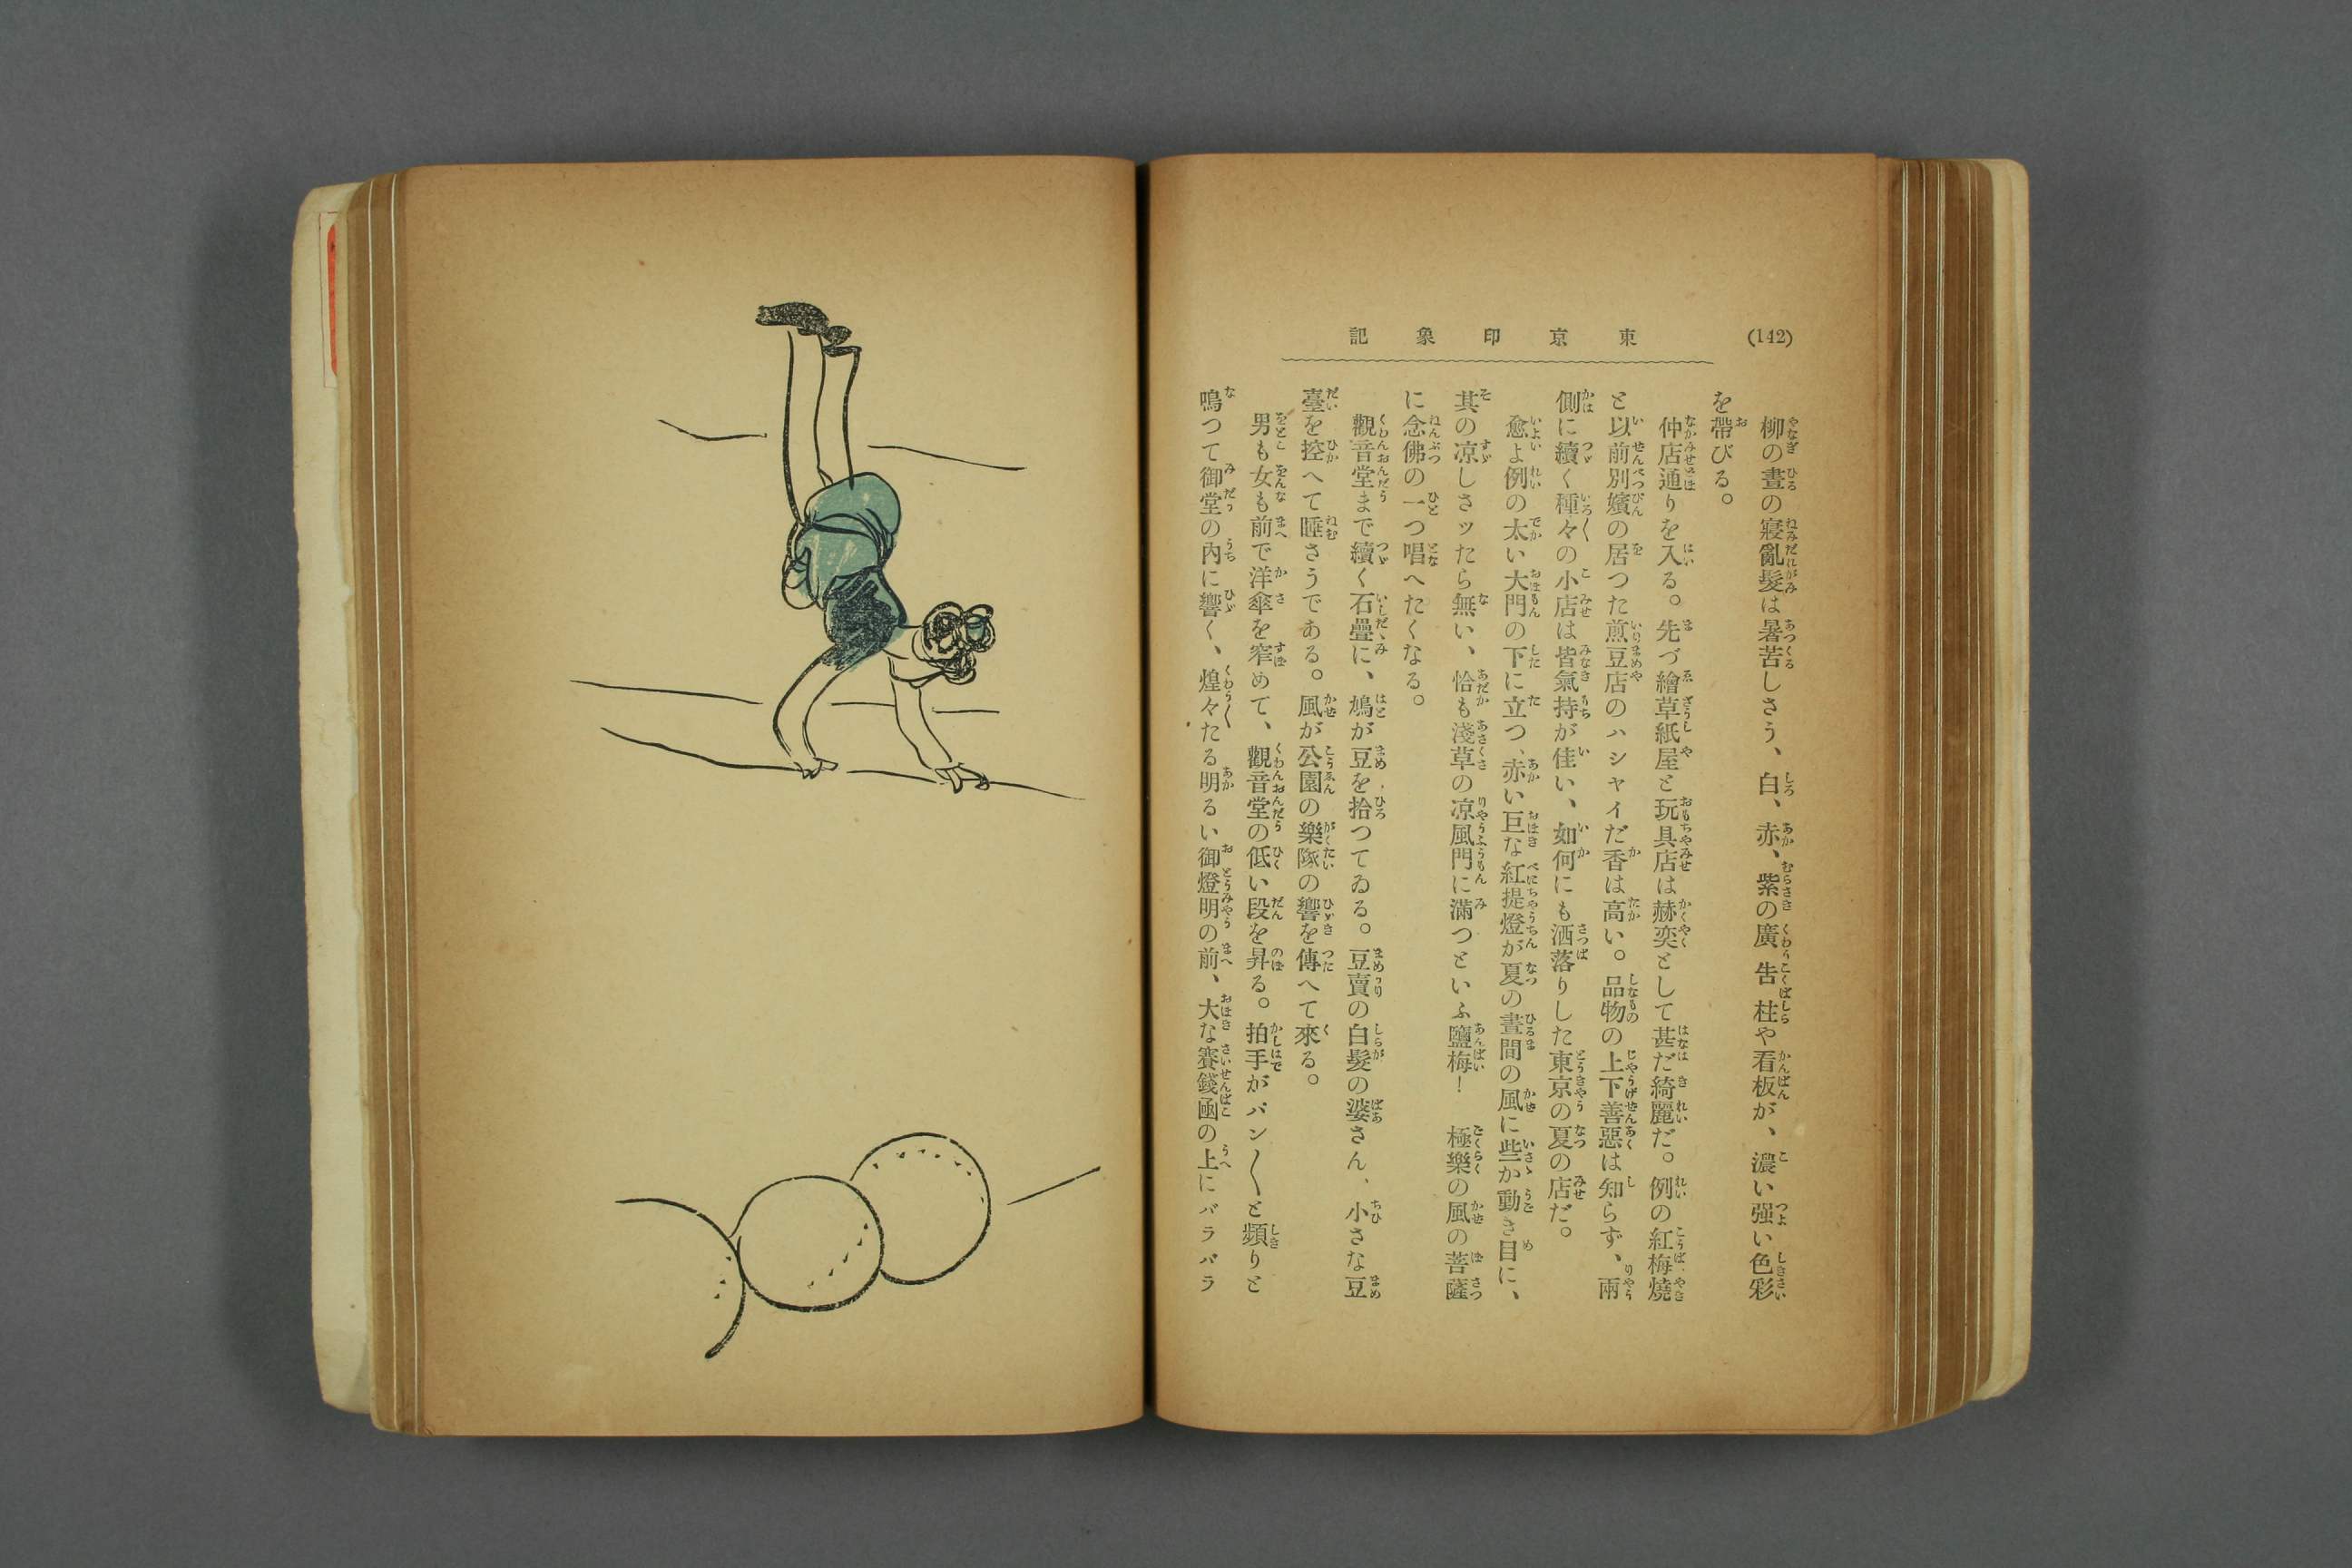 (142)
東京印象記
柳の晝の寢亂髮は暑苦しさう、白、赤、紫の廣吿柱や看板が、濃い强い色彩
を帶びる。
仲店通りを入る。先づ繪草紙屋と玩具店は赫奕として甚だ綺麗だ。例の紅梅燒
と以前別嬪の居つた煎豆店のハシャイだ香は高い。品物の上下善惡は知らず、兩
側に續く種々の小店は皆氣持が佳い、如何にも洒落りした東京の夏の店だ。
愈よ例の太い大門の下に立つ、赤い巨な紅提燈が夏の晝間の風に些か動き目に、
其の凉しさッたら無い、恰も淺草の凉風門に滿つといふ鹽梅！　極樂の風の菩薩
に念佛の一つ唱へたくなる。
觀音堂まで續く石疊に、鳩が豆を拾つてゐる。豆賣の白髮の婆さん、小さな豆
臺を控へて睡さうである。風が公園の樂隊の響を傳へて來る。
男も女も前で洋傘を窄めて、觀音堂の低い段を昇る。拍手がパン〱と頻りと
鳴つて御堂の內に響く、煌々たる明るい御燈明の前、大な賽錢凾の上にバラバラ